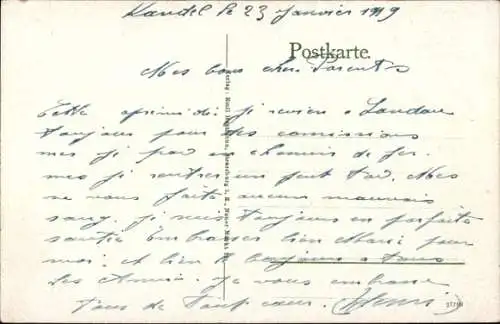 Kandel le 23 Janvier 1919
Postkarte.
Mes bons chers Parents
Cette après midi je reviens à Landau
toujours pour des comissions
mes je par en chemin de fer.
mes je rentrer un peut tar. Mes
se vous faite aucun mauvais
sang. je suis toujours en parfaite
santée Embrasser bien Marie pour
moi. et bien le bonjours a tous
les Amis. je vous embrasse
tous de tout cœur. Henri